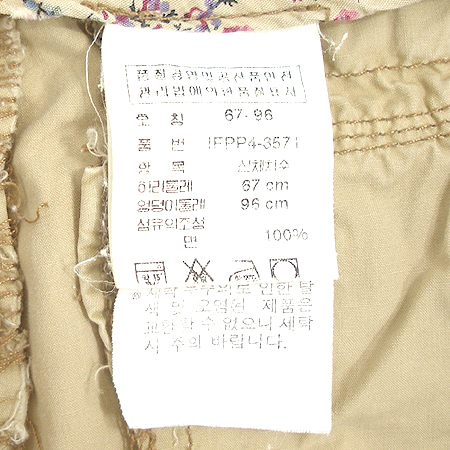 품질경영및공산품안전
관리법에의한품질표시
호 칭 67-96
품 번 IFPP4-3571
항 목 신체치수
허리둘레 67 cm
엉덩이둘레 96 cm
섬유의조성
면 100%
※세탁 부주의로 인한 탈
색 및 오염된 제품은
교환할수 없으니 세탁
시 주의 바랍니다.